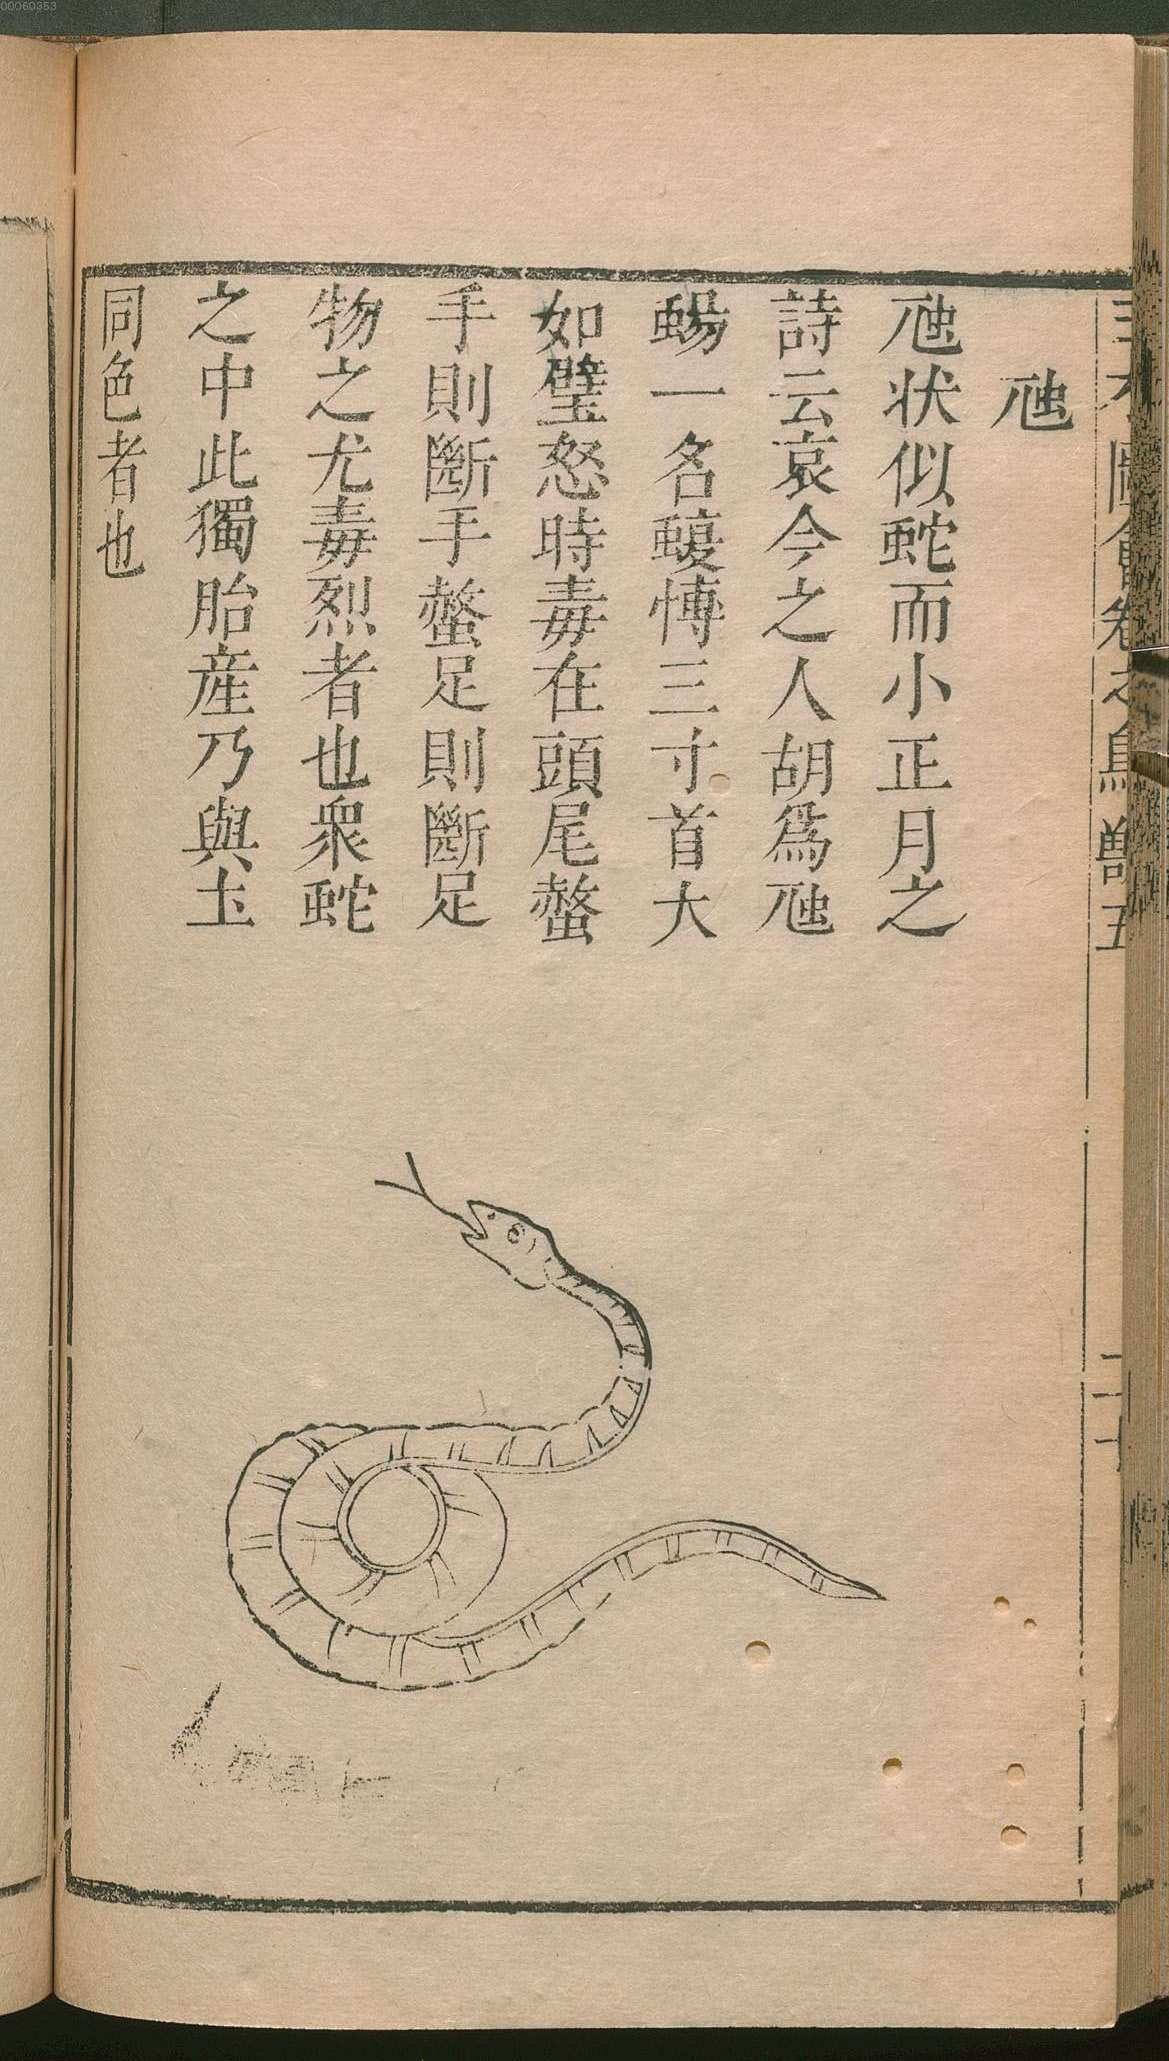 00060353
虺
虺状似蛇而小正月之
詩云哀今之人胡爲虺
蜴一名蝮慱三寸首大
如擘怒時毒在頭尾螫
手則斷手螫足則斷足
物之尤毒烈者也衆蛇
之中此獨胎産乃與土
同色者也